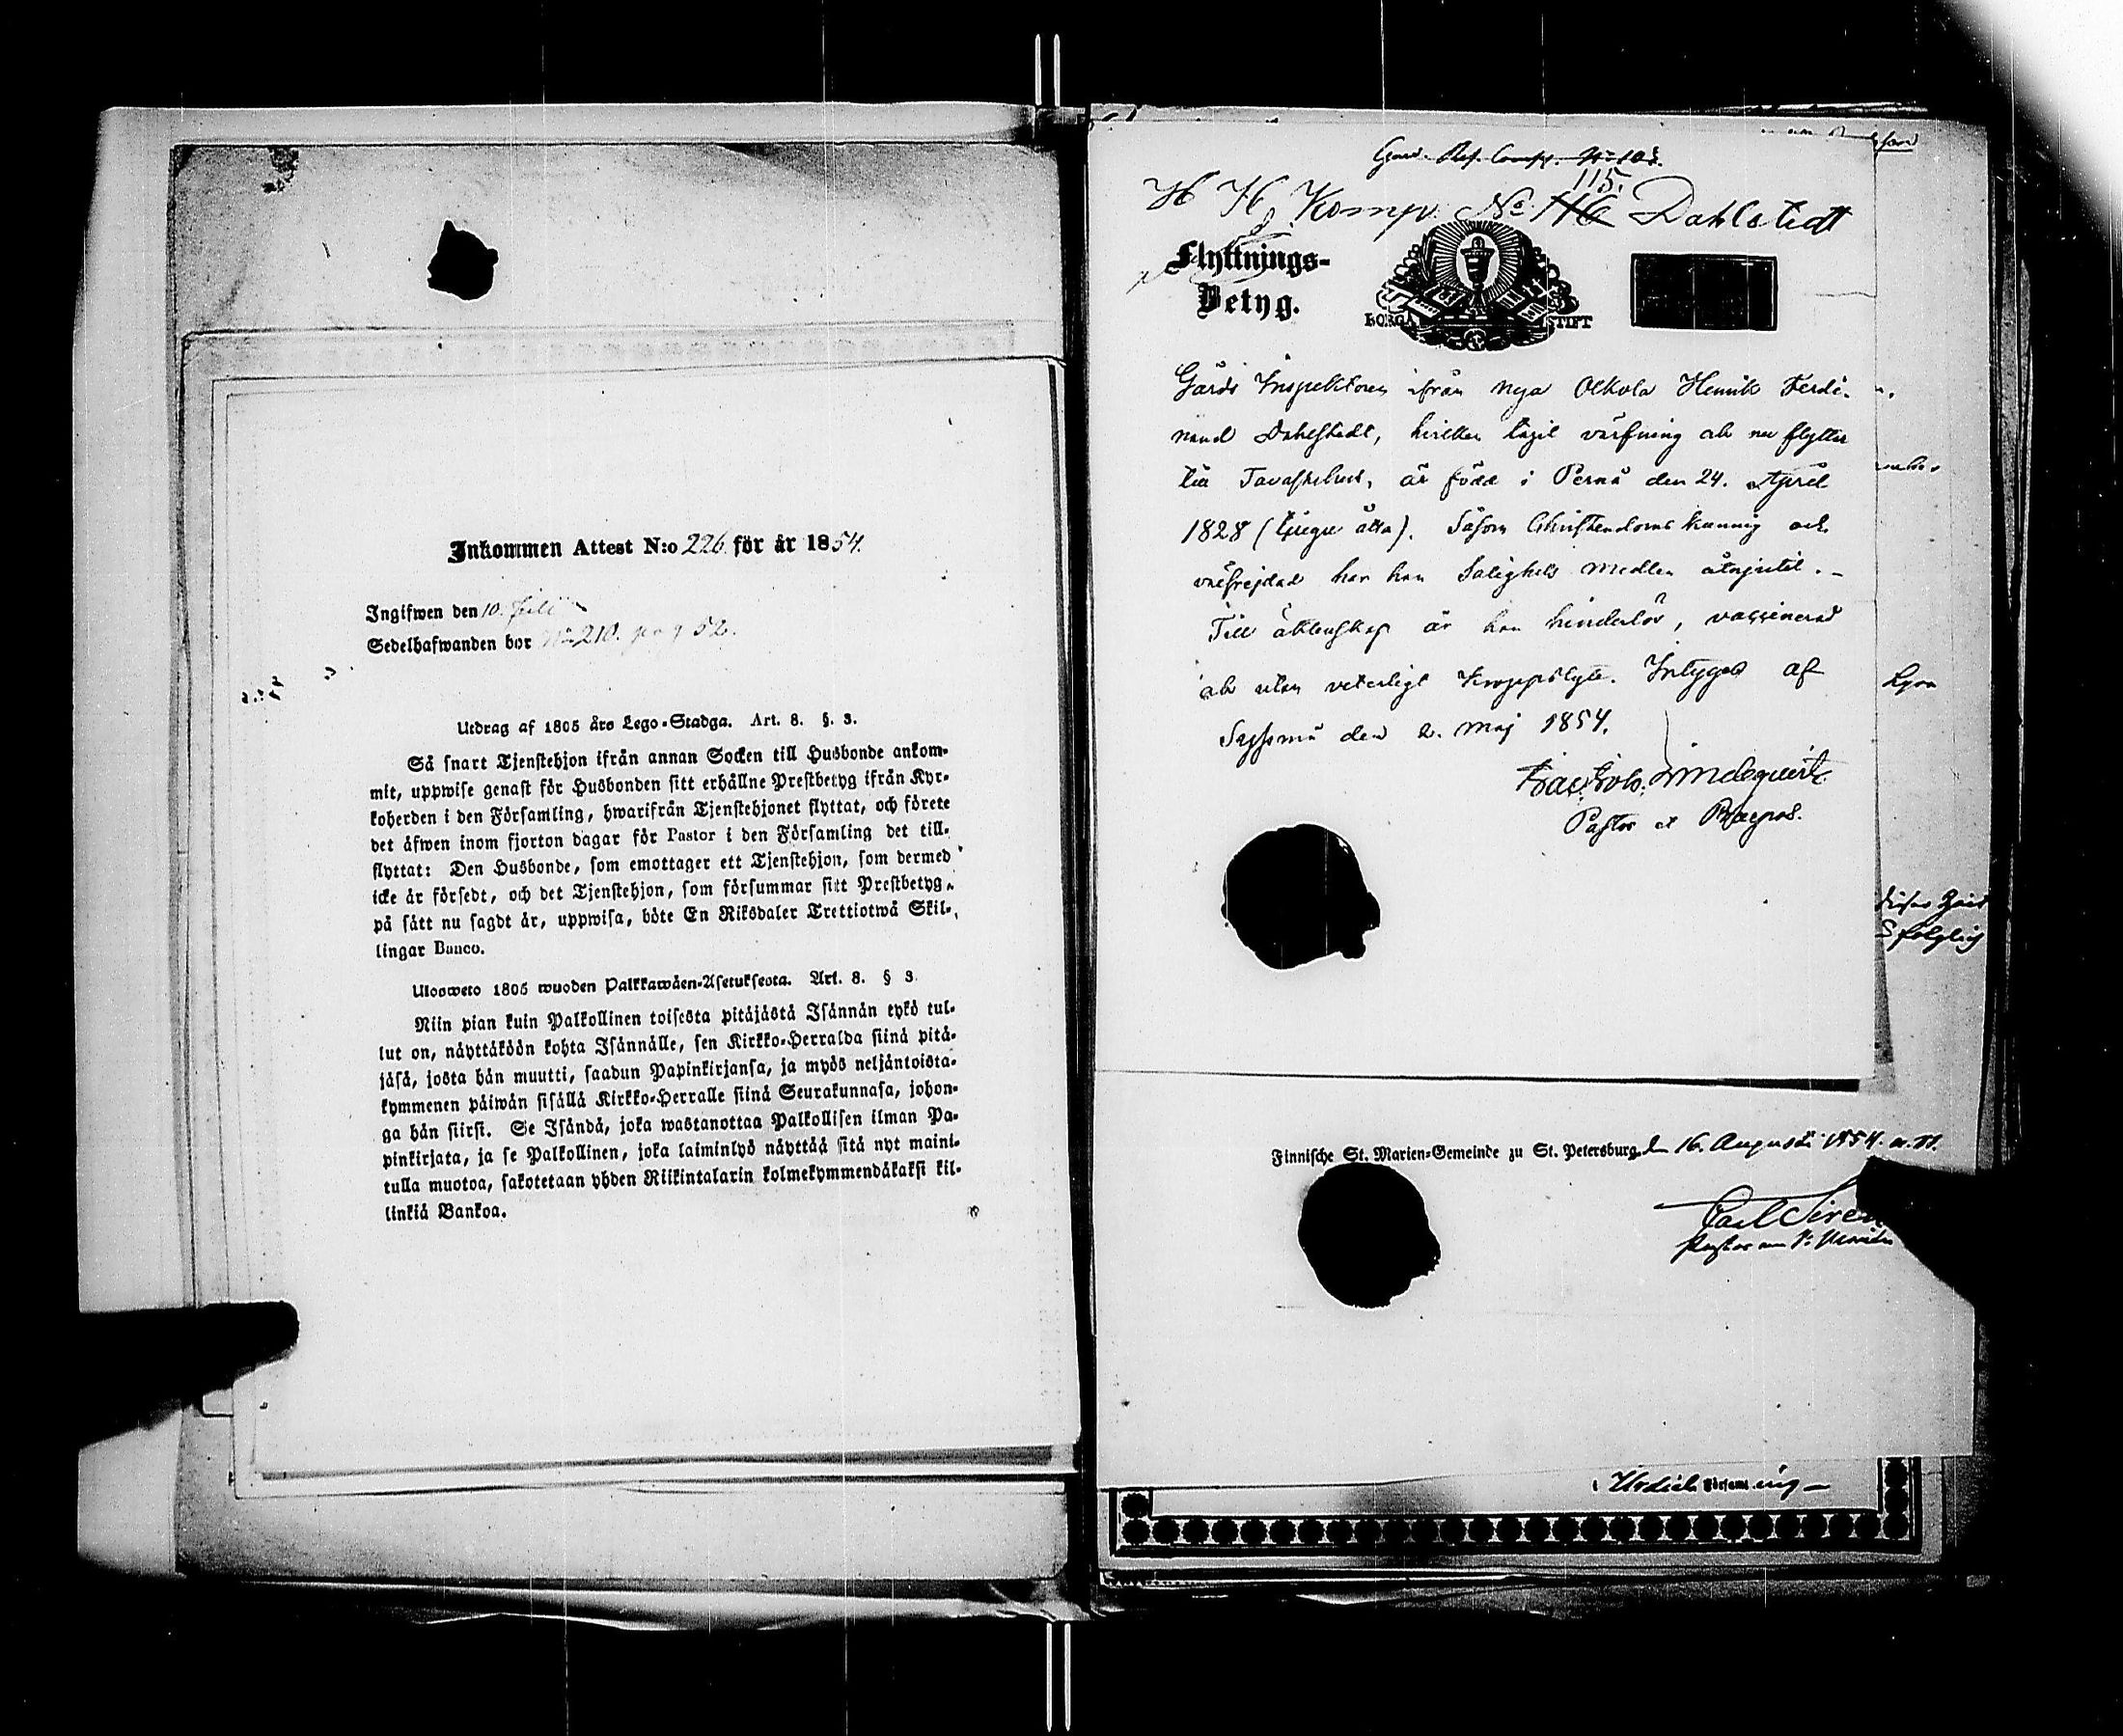 Inkommen Attest N:o 226 för år 1854.
Ingifwen den 10. Juli
Sedelhafwanden bor No 210. pag 52.
Utdrag af 1805 års Lego-Stadga. Art. 8. §. 3.
Så snart Tjenstehjon ifrån annan Socken till Husbonde ankom-
mit, uppwise genast för Husbonden sitt erhållne Prestbetyg ifrån Kyr-
koherden i den Församling, hwarifrån Tjenstehjonet flyttat, och förete
det äfwen inom fjorton dagar för Pastor i den Församling det till-
flyttat: Den Husbonde, som emottager ett Tjenstehjon, som dermed
icke är försedt, och det Tjenstehjon, som försummar sitt Prestbetyg,
på sätt nu sagdt är, uppwisa, böte En Riksdaler Trettiotwå Skil-
lingar Banco.
Ulosweto 1805 wuoden Palkkawäen-Asetuksesta. Art. 8. § 3.
Niin pian kuin Palkollinen toisesta pitäjästä Isännän tykö tul-
lut on, näyttäköön kohta Isännälle, sen Kirkko-Herralda siinä pitä-
jäsä, josta hän muutti, saadun Papinkirjansa, ja myös neljäntoista-
kymmenen päiwän sisällä Kirkko-Herralle siinä Seurakunnasa, johon-
ga hän siirsi. Se Isändä, joka wastanottaa Palkollisen ilman Pa-
pinkirjata, ja se Palkollinen, joka laiminlyö näyttää sitä nyt maini-
tulla muotoa, sakotetaan yhden Riikintalarin kolmekymmendäkaksi kil-
linkiä Bankoa.
Gard. Res. Comp. No 105.
115.
H H Komp No 116 Dahlstedt
Flyttnings-
Betyg.
BORGÅ STIFT
Gårds Inspektoren ifrån Nya Olkola Henrik Ferdi-
nand Dahlstedt, hvilken tagit värfning och nu flyttar
till Tavastehus, är född i Perno den 24. April
1828 (tjugu åtta). Såsom Christendoms kunnig och
välfrejdad har han Salighets medlen åtnjutit. -
Till äktenskap är han hinderlös, vaccinerad
och utan veterligt kroppslyte. Intygas af
Sysmä den 2. Maj 1854.
Lindequist
Pastor et Præpos.
Finnische St. Marien-Gemeinde zu St. Petersburg d 16. August 1854. a. St.
Carl Siren
Pastor an St. Marien
folglich